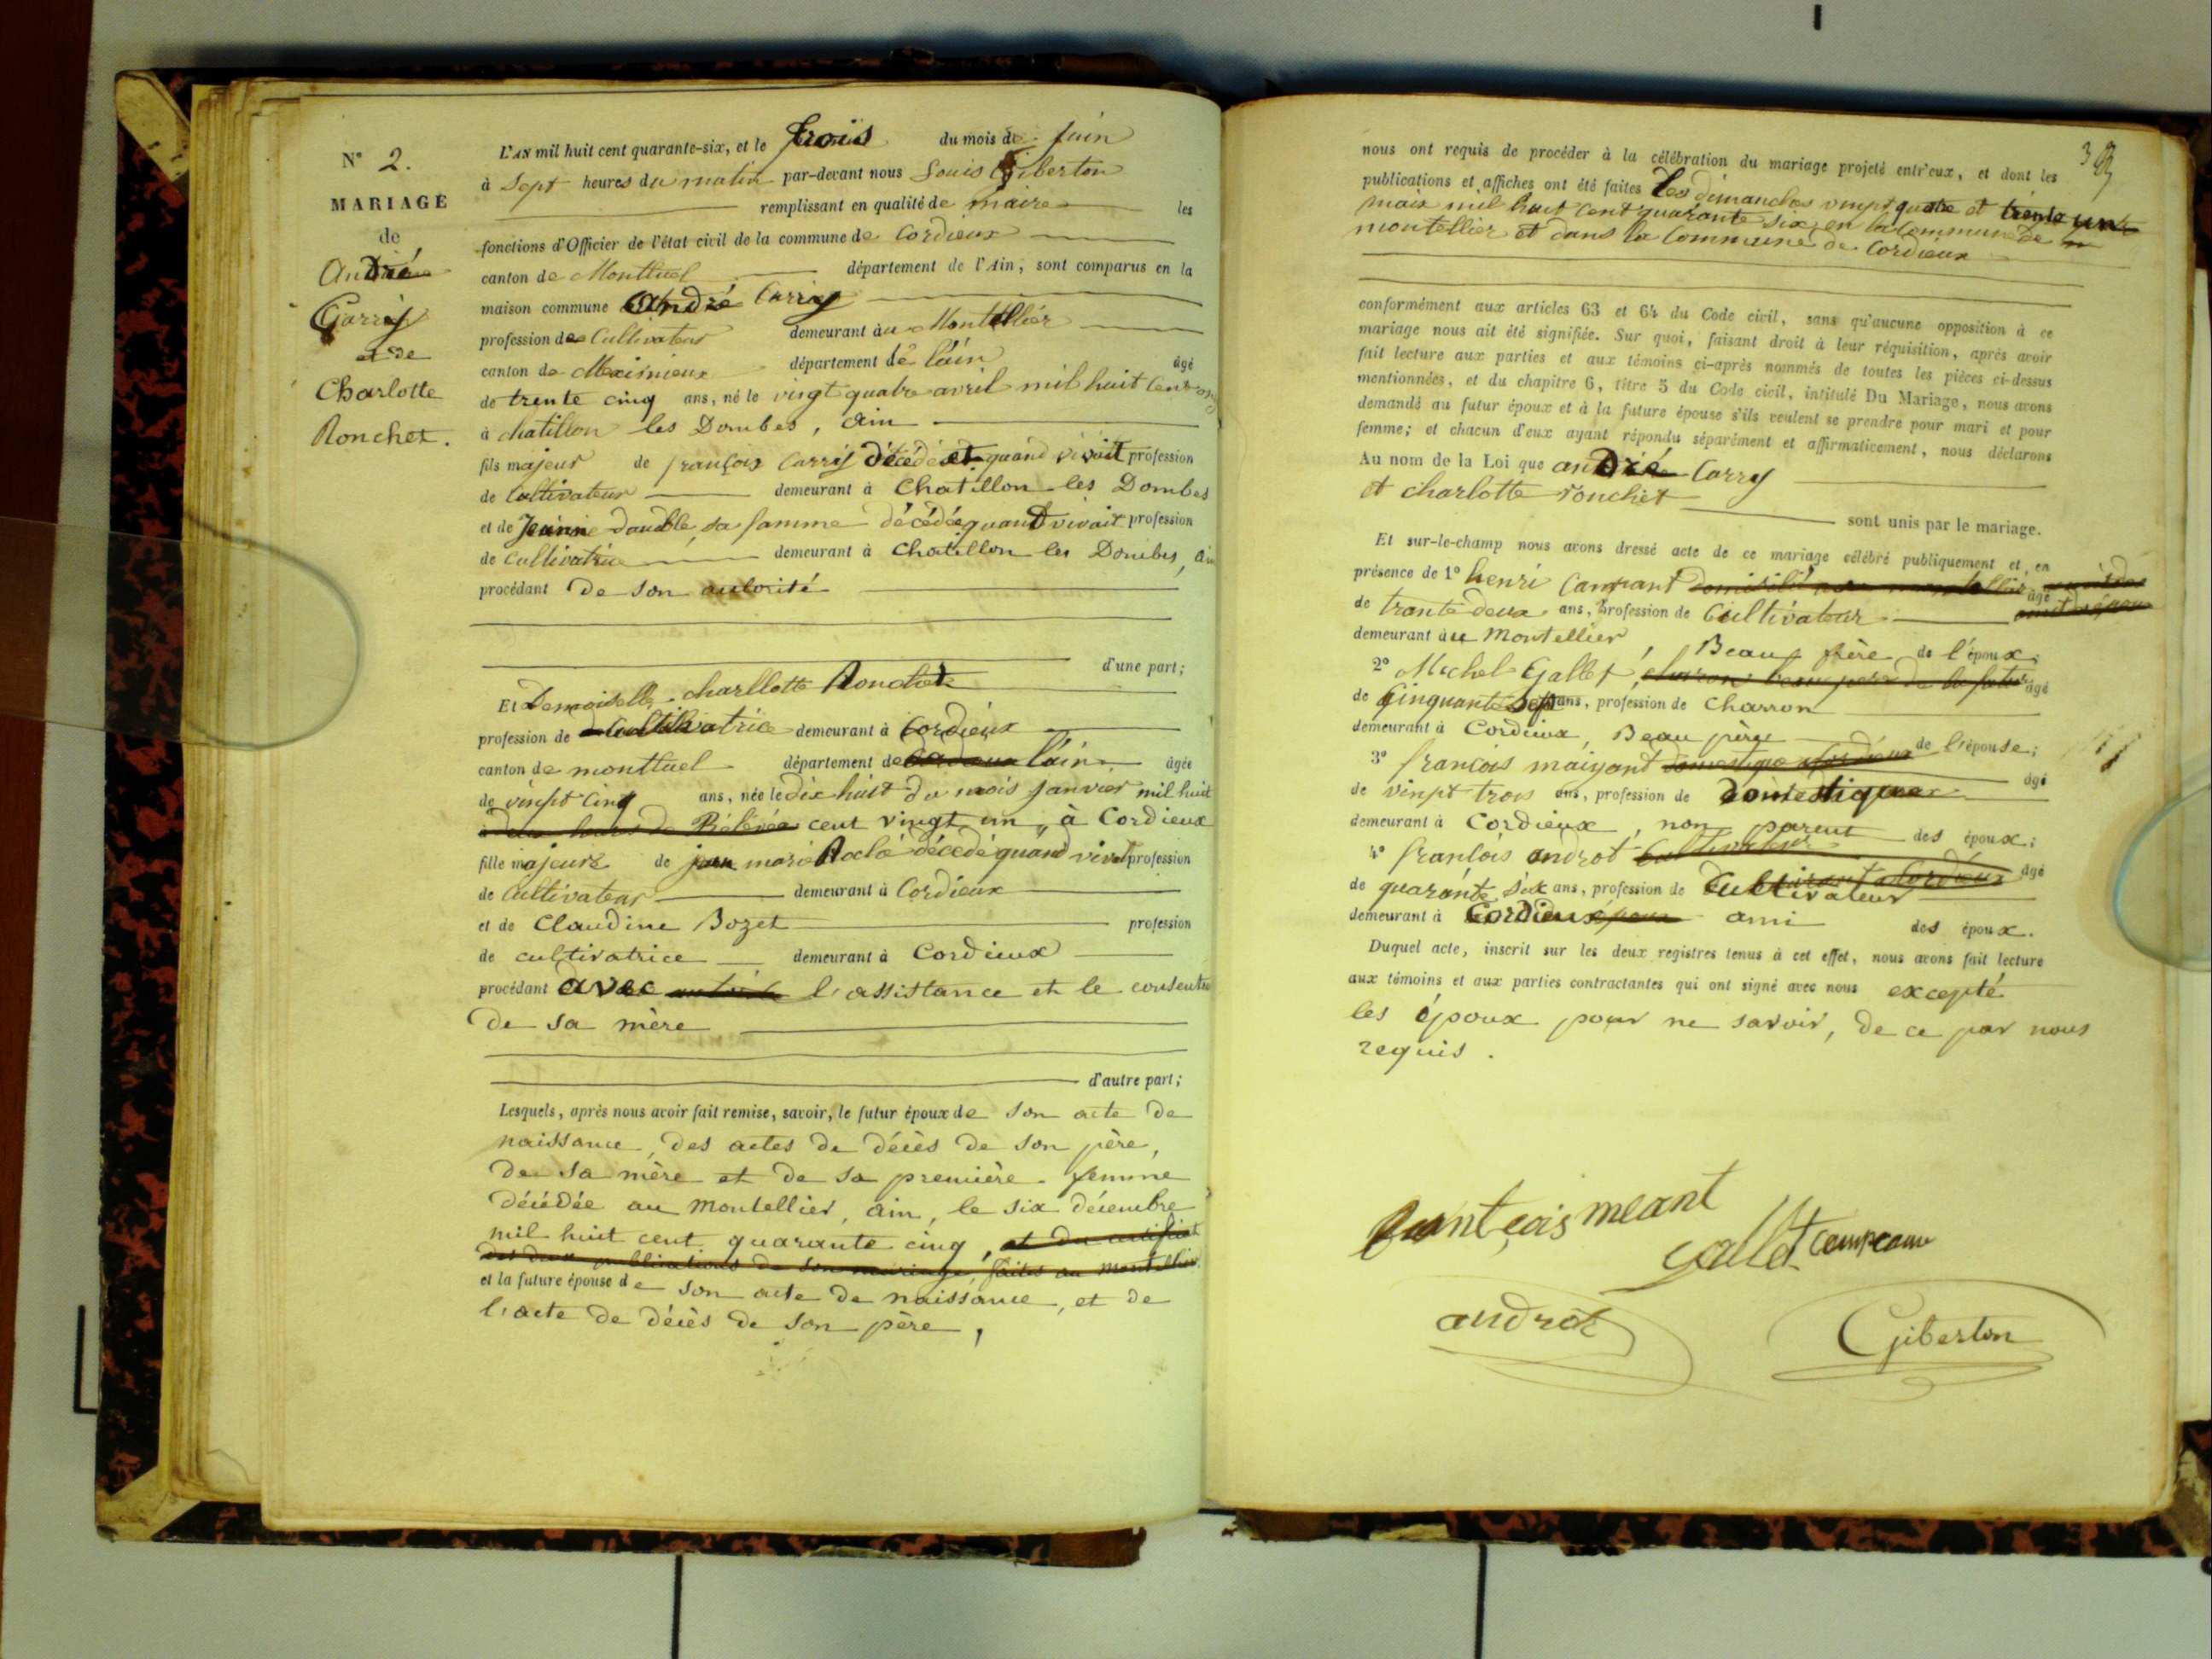 N° 2.
MARIAGE
de
André
Carry
et de
Charlotte
Ronchet.
L'AN mil huit cent quarante-six, et le trois du mois de Juin
à Sept heures du matin par-devant nous Louis Giberton
remplissant en qualité de maire les
fonctions d'Officier de l'état civil de la commune de Cordieux
canton de Montluel département de l'Ain, sont comparus en la
maison commune André Carry
profession de Cultivateur demeurant au Montellier
canton de Meximieux département de l'ain âgé
de trente cinq ans, né le vingt quatre avril mil huit cent onze
à chatillon les Dombes, ain
fils majeur de françois Carry décédé et quand vivait profession
de Cultivateur demeurant à Chatillon les Dombes
et de Jeanne Daudble, sa famme décédée quand vivait profession
de Cultivatrice demeurant à Chatillon les Dombes, ain
procédant de son autorité
d'une part;
Et Demoiselle charllotte Ronchet
profession de Cultivatrice demeurant à Cordieux
canton de montluel département de l'ain âgée
de vinpt Cinq ans, née le dix huit du mois Janvier mil huit
cent vingt un, à Cordieux
fille majeure de marie décédé quand vivet profession
de Cultivateur demeurant à Cordieux
et de Claudine Bozet profession
de cultivatrice demeurant à Cordieux
procédant avec l'assistance et le consentem
de sa mère
d'autre part;
Lesquels, après nous avoir fait remise, savoir, le futur époux de son acte de
naissance, des actes de décès de son père,
de sa mère et de sa première femme
décédée au Montellier, ain, le six décembre
mil huit cent quarante cinq, et du certificat
des deux publications de son mariage, faites au montellier
et la future épouse de son acte de naissance, et de
l'acte de décès de son père,
nous ont requis de procéder à la célébration du mariage projeté entr'eux, et dont les
publications et affiches ont été faites Les dimanches vinpt quatre et trente un
mais mil huit cent quarante six, en la Commune de
montellier et dans la Commune de Cordieux
conformément aux articles 63 et 64 du Code civil, sans qu'aucune opposition à ce
mariage nous ait été signifiée. Sur quoi, faisant droit à leur réquisition, après avoir
fait lecture aux parties et aux témoins ci-après nommés de toutes les pièces ci-dessus
mentionnées, et du chapitre 6, titre 5 du Code civil, intitulé Du Mariage, nous avons
demandé au futur époux et à la future épouse s'ils veulent se prendre pour mari et pour
femme; et chacun d'eux ayant répondu séparément et affirmativement, nous déclarons
Au nom de la Loi que andré Carry
et charlotte ronchet
sont unis par le mariage.
Et sur-le-champ nous avons dressé acte de ce mariage célébré publiquement et en
présence de 1° henri Campant domisilié au montellier âgé
de trante deux ans, profession de Cultivateur
demeurant au Montellier, Beau frère de l'époux;
2° Michel Gallet, charron beau père de la future âgé
de Cinquante Sept ans, profession de Charron
demeurant à Cordieux, Beau père de l'épouse;
3° francois maiyant domestique a Cordieux âgé
de vinpt trois ans, profession de Domestique
demeurant à Cordieux, non parent des époux;
4° franlois androt Cultivateur âgé
de quarante Six ans, profession de Cultivateur
demeurant à Cordieux ami des époux.
Duquel acte, inscrit sur les deux registres tenus à cet effet, nous avons fait lecture
aux témoins et aux parties contractantes qui ont signé avec nous excepté
les époux pour ne savoir, de ce par nous
requis.
meant
Gallet
androt
Giberton